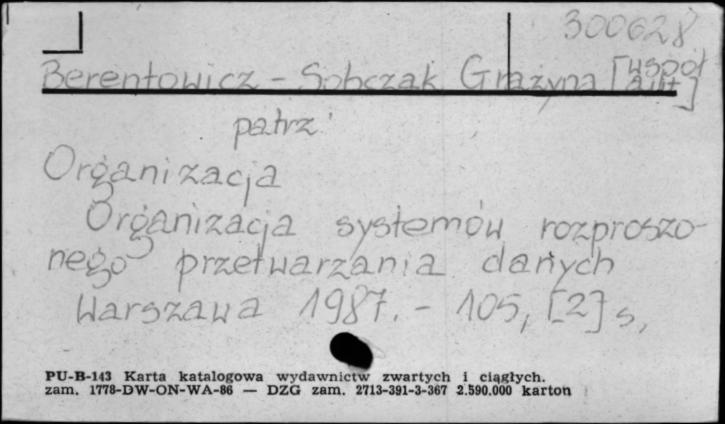 300628
Berentowicz - Sobczak Grażyna [współ
aut]
patrz
Organizacja
Organizacja systemów rozproszo-
nego przetwarzania danych
Warszawa 1987. - 105, [2] s,
PU-B-143 Karta katalogowa wydawnictw zwartych i ciągłych.
zam. 1778-DW-ON-WA-86 — DZG zam. 2713-391-3-367 2.590.000 karton